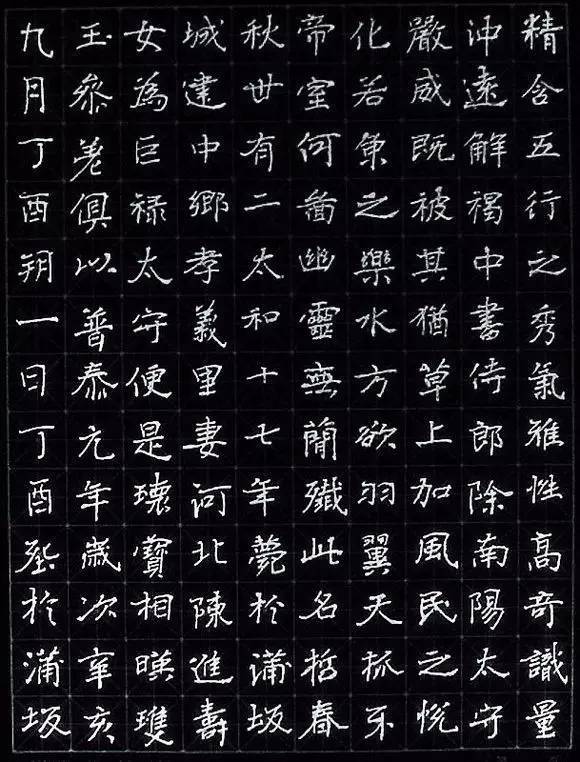 精含五行之秀氣雅性高奇識量
沖遠解褐中書侍郎除南陽太守
嚴威既被其猶草上加風民之悅
化若魚之樂水方欲羽翼天抓牙
帝室何啚幽靈無簡殲此名哲春
秋卅有二太和十七年薨於蒲坂
城建中鄉孝義里妻河北陳進壽
女為巨祿太守便是瓌寶相暎瓊
玉參差俱以普泰元年歲次辛亥
九月丁酉朔一日丁酉塟於蒲坂